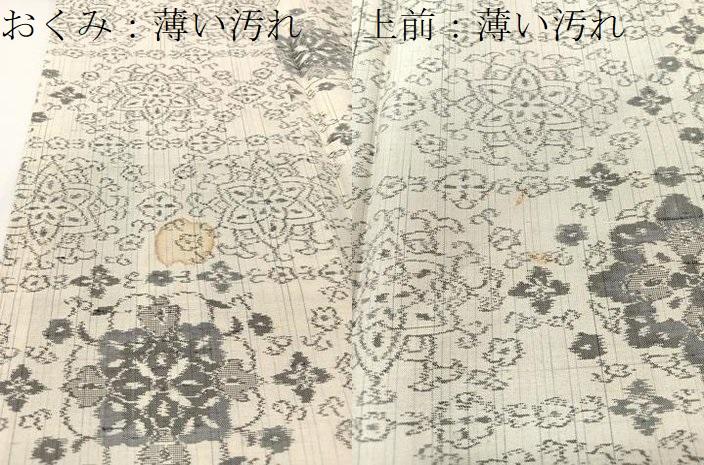 おくみ：薄い汚れ
上前：薄い汚れ